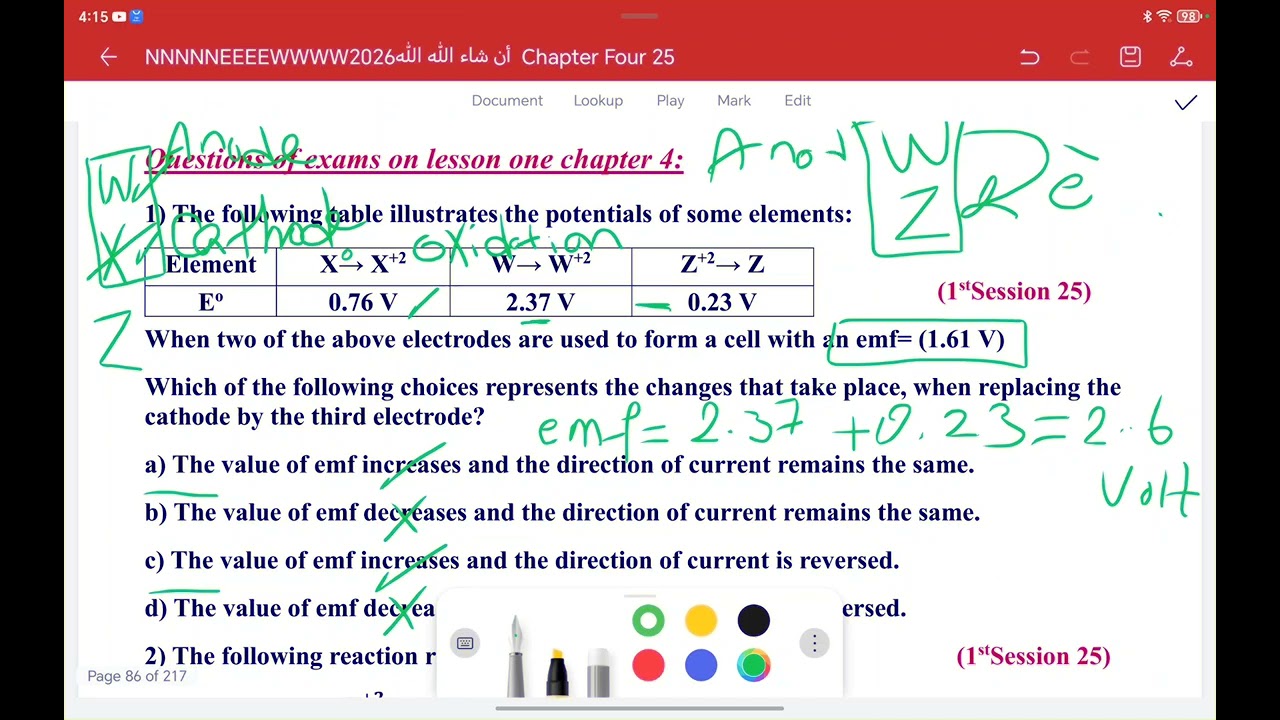 4:15
98
NNNNNEEEEWWWW2026أن شاء الله الله Chapter Four 25
Document Lookup Play Mark Edit
W Anode
Anod W è
Questions of exams on lesson one chapter 4:
Z
1) The following table illustrates the potentials of some elements:
X Cathode oxidation
Element X→ X+2 W→ W+2 Z+2→ Z
Eº 0.76 V 2.37 V 0.23 V
(1stSession 25)
Z
When two of the above electrodes are used to form a cell with an emf= (1.61 V)
Which of the following choices represents the changes that take place, when replacing the
cathode by the third electrode?
emf = 2.37 + 0.23 = 2.6
Volt
a) The value of emf increases and the direction of current remains the same.
b) The value of emf decreases and the direction of current remains the same.
c) The value of emf increases and the direction of current is reversed.
d) The value of emf decrea ersed.
2) The following reaction r (1stSession 25)
Page 86 of 217
+2